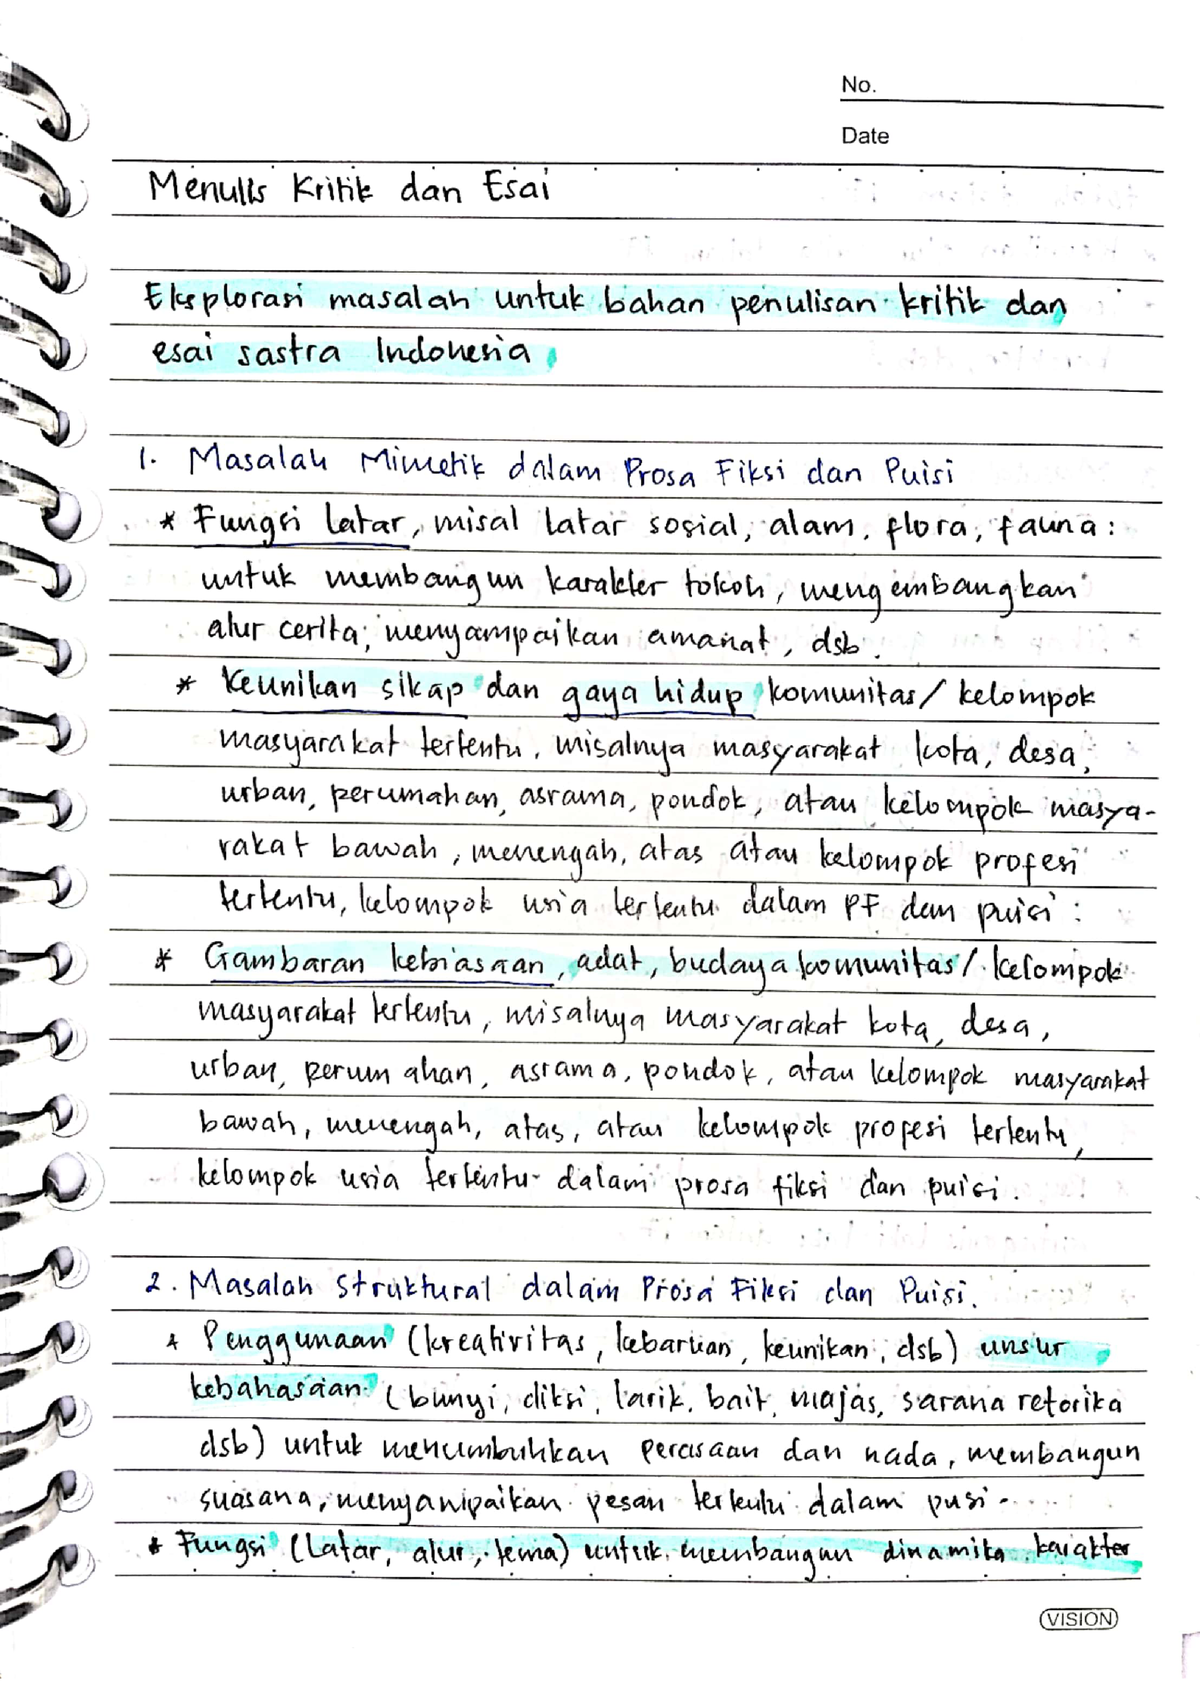 No.
Date
Menulis Kritik dan Esai
Eksplorasi masalah untuk bahan penulisan kritik dan
esai sastra Indonesia
1. Masalah Mimetik dalam Prosa Fiksi dan Puisi
* Fungsi Latar, misal latar sosial, alam, flora, fauna :
untuk membangun karakter tokoh, mengembangkan
alur cerita, menyampaikan amanat, dsb.
* Keunikan sikap dan gaya hidup komunitas/ kelompok
masyarakat tertentu, misalnya masyarakat kota, desa,
urban, perumahan, asrama, pondok, atau kelompok masya-
rakat bawah, menengah, atas atau kelompok profesi
tertentu, kelompok usia tertentu dalam PF dan puisi :
* Gambaran kebiasaan, adat, budaya komunitas/ kelompok
masyarakat tertentu, misalnya masyarakat kota, desa,
urban, perumahan, asrama, pondok, atau kelompok masyarakat
bawah, menengah, atas, atau kelompok profesi tertentu,
kelompok usia tertentu dalam prosa fiksi dan puisi.
2. Masalah Struktural dalam Prosa Fiksi dan Puisi.
* Penggunaan (kreativitas, kebaruan, keunikan, dsb) unsur
kebahasaan (bunyi, diksi, larik, bait, majas, sarana retorika
dsb) untuk menumbuhkan perasaan dan nada, membangun
suasana, menyampaikan pesan tertentu dalam pusi.
* Fungsi (Latar, alur, tema) untuk membangun dinamika karakter
VISION